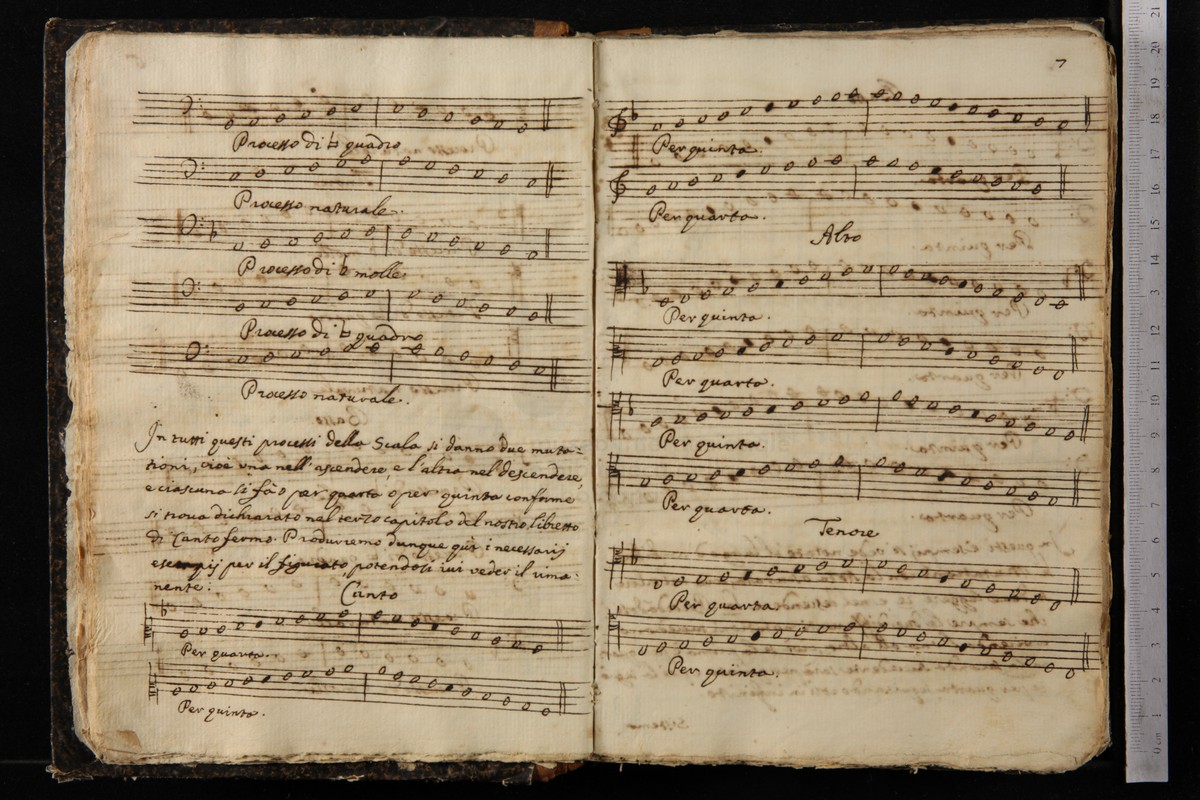 Processo di ♮ quadro
Processo naturale.
Processo di ♭ molle.
Processo di ♮ quadro
Processo naturale.
In tutti questi processi della Scala si danno due muta-
tioni, cioè vna nell'ascendere, e l'altra nel descendere,
e ciascuna si fà o per quarta o per quinta conforme
si troua dichiarato nel terzo capitolo del nostro libretto
di Canto fermo. Produrremo dunque quì i necessarij
essempij per il figurato, potendosi iui veder il rima-
nente.
Canto
Per quarta.
Per quinta.
7
Per quinta.
Per quarta.
Alto
Per quinta.
Per quarta.
Per quinta.
Per quarta.
Tenore
Per quarta.
Per quinta.